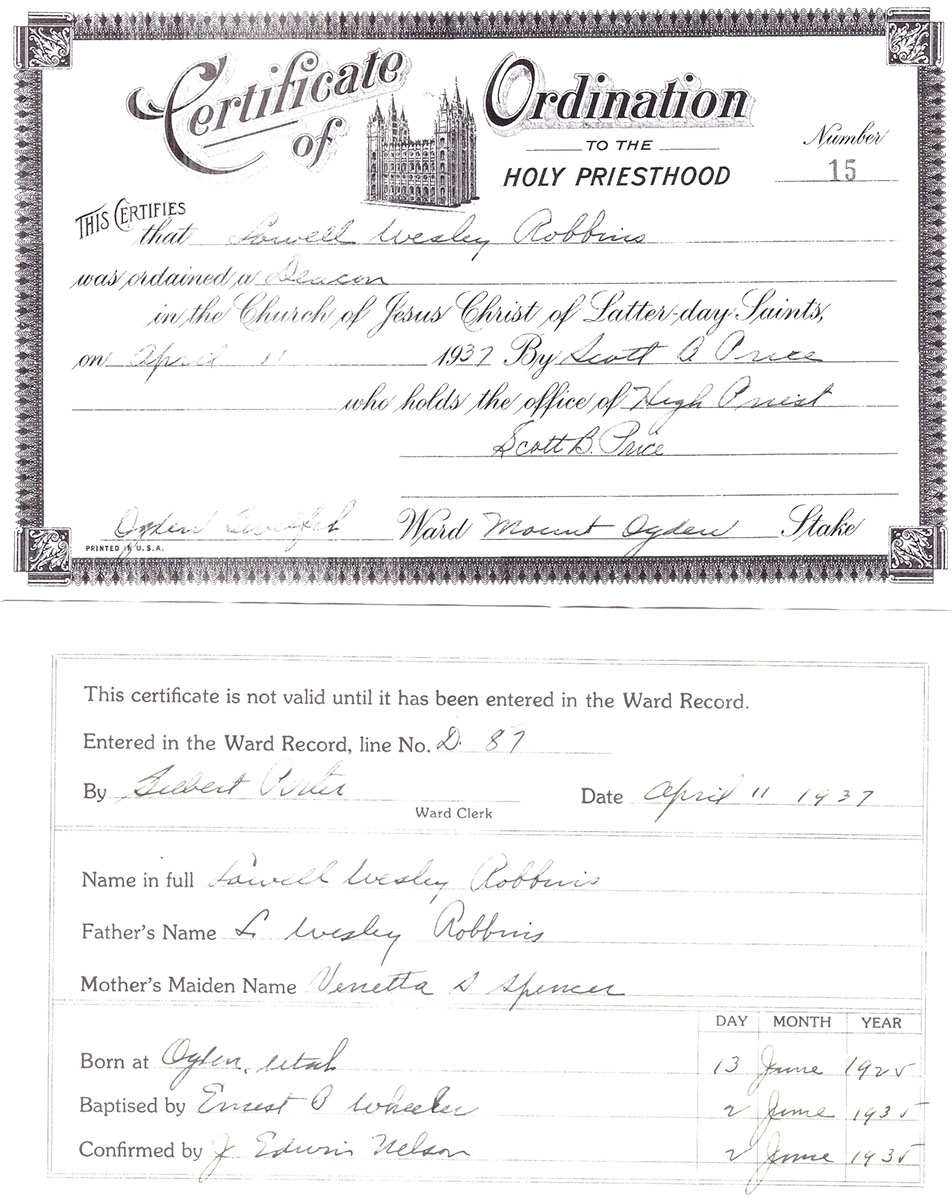 Certificate of Ordination
TO THE
HOLY PRIESTHOOD
Number
15
THIS CERTIFIES
that Lowell Wesley Robbins
was ordained a Deacon
in the Church of Jesus Christ of Latter-day Saints,
on April 11 1937 By Scott B Price
who holds the office of High Priest
Scott B. Price
Ogden Twelfth Ward Mount Ogden Stake
PRINTED IN U.S.A.
This certificate is not valid until it has been entered in the Ward Record.
Entered in the Ward Record, line No. D. 87
By Gilbert Date April 11 1937
Ward Clerk
Name in full Lowell Wesley Robbins
Father's Name L Wesley Robbins
Mother's Maiden Name Venetta S Spencer
DAY MONTH YEAR
Born at Ogden, Utah 13 June 1925
Baptised by Ernest B Wheeler 2 June 1935
Confirmed by J Edwin Nelson 2 June 1935